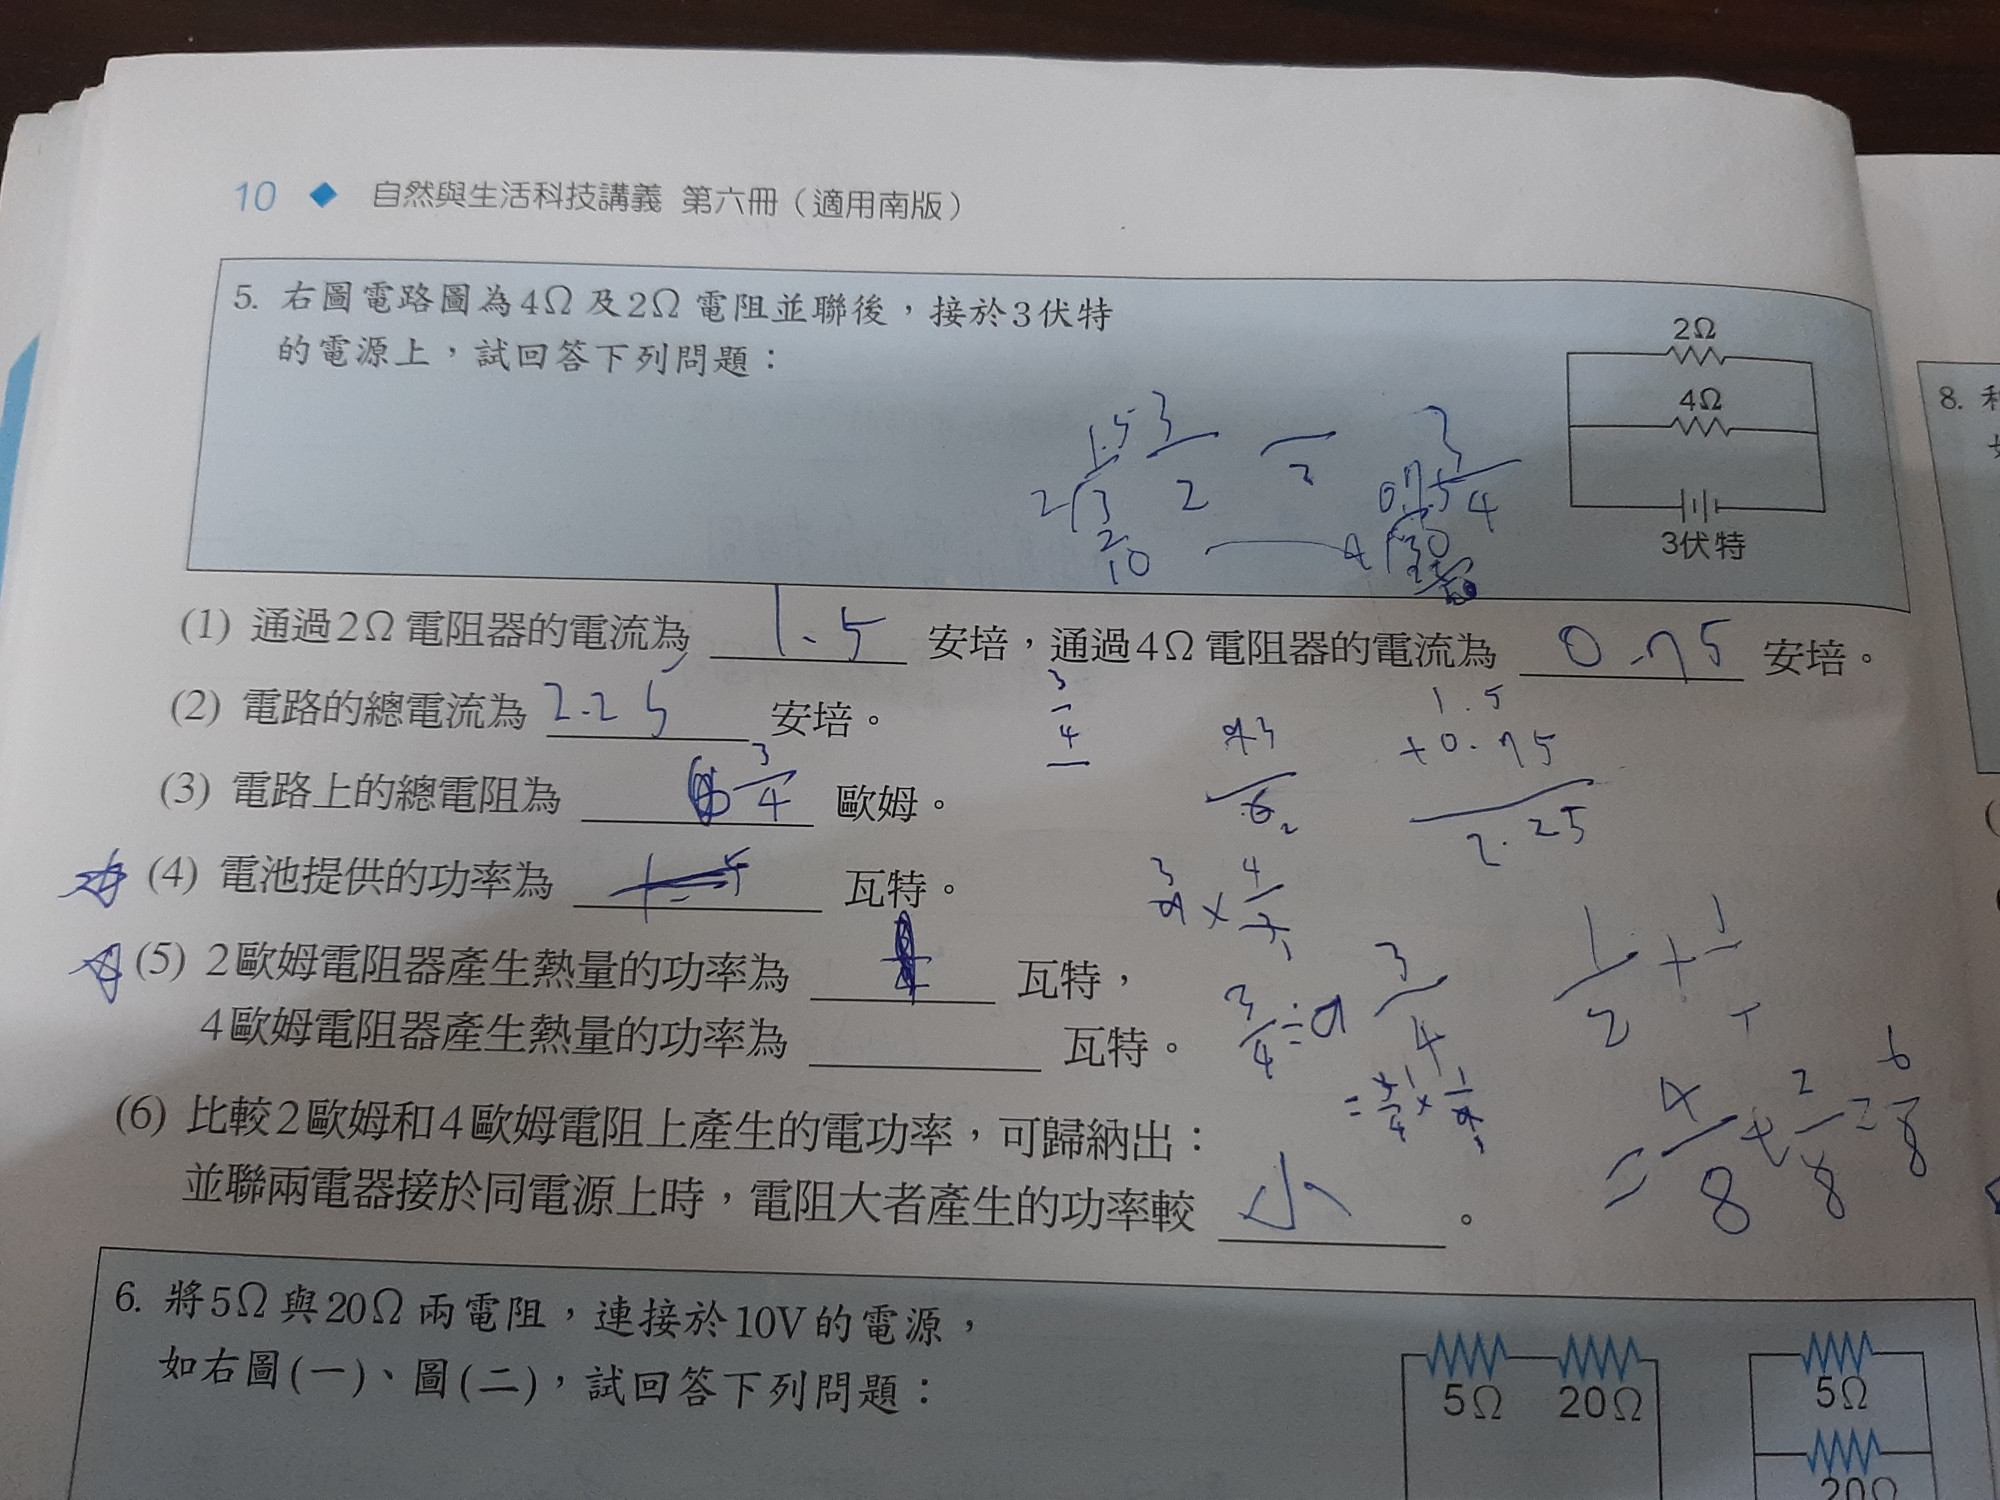 10 ◆ 自然與生活科技講義 第六冊（適用南版）
5. 右圖電路圖為4Ω及2Ω電阻並聯後，接於3伏特
的電源上，試回答下列問題：
2Ω
4Ω
3伏特
1.5 3
2 3 2
2
10
3
4
(1) 通過2Ω電阻器的電流為 1.5 安培，通過4Ω電阻器的電流為 0.75 安培。
(2) 電路的總電流為 2.25 安培。
3
4
1.5
+0.75
2.25
(3) 電路上的總電阻為 3/4 歐姆。
(4) 電池提供的功率為 瓦特。
(5) 2歐姆電阻器產生熱量的功率為 瓦特，
4歐姆電阻器產生熱量的功率為 瓦特。
4/8+2/8=6/8
(6) 比較2歐姆和4歐姆電阻上產生的電功率，可歸納出：
並聯兩電器接於同電源上時，電阻大者產生的功率較 小 。
6. 將5Ω與20Ω兩電阻，連接於10V的電源，
如右圖(一)、圖(二)，試回答下列問題：
5Ω 20Ω
5Ω
20Ω
8.